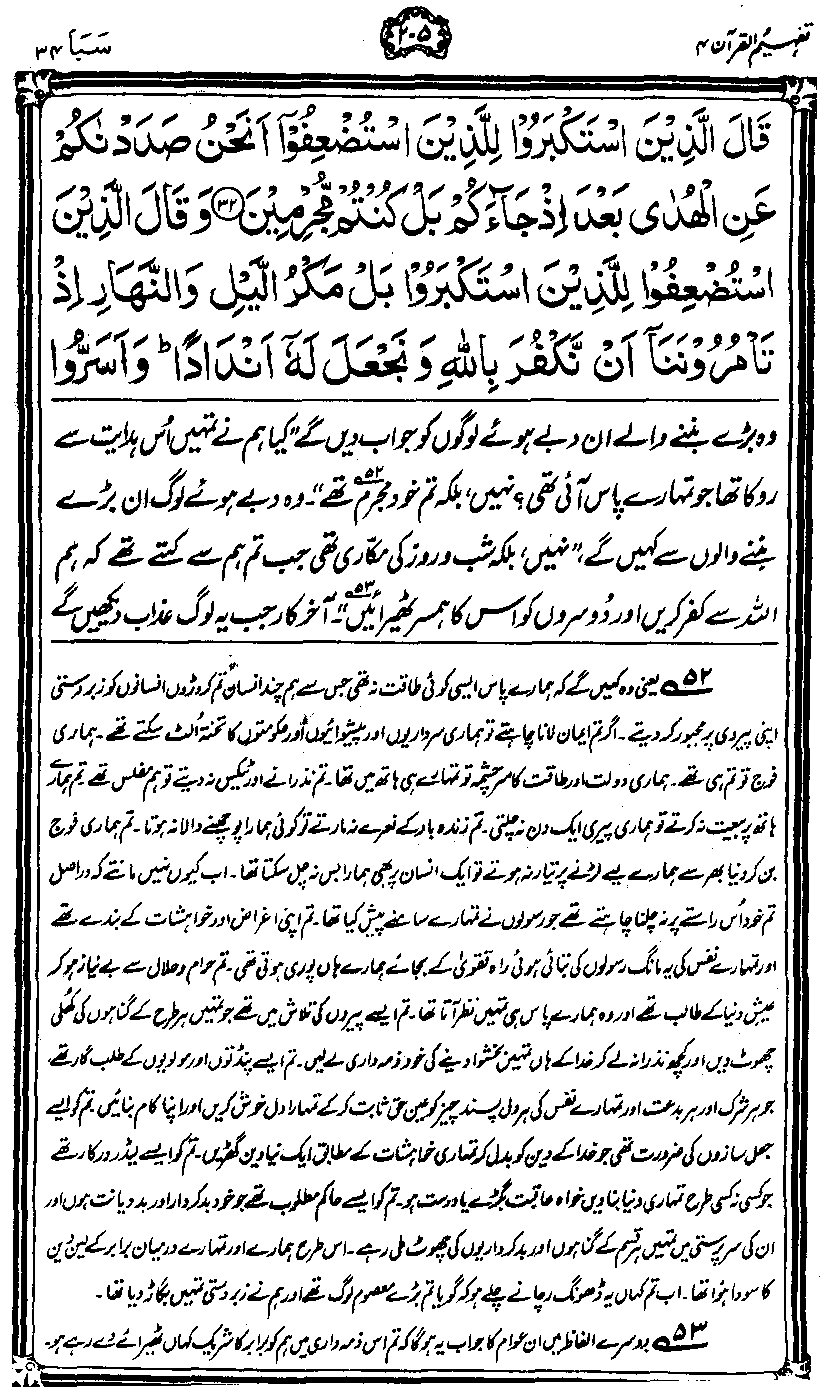 تفہیم القرآن ۴
۲۰۵
سَبَا ۳۴
قَالَ الَّذِيْنَ اسْتَكْبَرُوْا لِلَّذِيْنَ اسْتُضْعِفُوْٓا اَنَحْنُ صَدَدْنٰكُمْ
عَنِ الْهُدٰى بَعْدَ اِذْ جَآءَكُمْ بَلْ كُنْتُمْ مُّجْرِمِيْنَ ﴿۳۲﴾ وَقَالَ الَّذِيْنَ
اسْتُضْعِفُوْا لِلَّذِيْنَ اسْتَكْبَرُوْا بَلْ مَكْرُ الَّيْلِ وَالنَّهَارِ اِذْ
تَاْمُرُوْنَنَآ اَنْ نَّكْفُرَ بِاللّٰهِ وَنَجْعَلَ لَهٗٓ اَنْدَادًا ؕ وَاَسَرُّوا
وہ بڑے بننے والے ان دبے ہوئے لوگوں کو جواب دیں گے ”کیا ہم نے تمہیں اُس ہدایت سے
روکا تھا جو تمہارے پاس آئی تھی؟ نہیں، بلکہ تم خود مجرم تھے۵۲“۔ وہ دبے ہوئے لوگ ان بڑے
بننے والوں سے کہیں گے، ”نہیں، بلکہ شب و روز کی مکاری تھی جب تم ہم سے کہتے تھے کہ ہم
اللہ سے کفر کریں اور دُوسروں کو اس کا ہمسر ٹھیرائیں۵۳“۔ آخرکار جب یہ لوگ عذاب دیکھیں گے
۵۲ یعنی وہ کہیں گے کہ ہمارے پاس ایسی کوئی طاقت نہ تھی جس سے ہم چند انسان تم کروڑوں انسانوں کو زبردستی
اپنی پیروی پر مجبور کر دیتے۔ اگر تم ایمان لانا چاہتے تو ہماری سرداریوں اور پیشوائیوں اور حکومتوں کا تختہ اُلٹ سکتے تھے۔ ہماری
فوج تو تم ہی تھے۔ ہماری دولت اور طاقت کا سرچشمہ تو تمہارے ہی ہاتھ میں تھا۔ تم نذرانے اور ٹیکس نہ دیتے تو ہم مفلس تھے۔ تم ہمارے
ہاتھ پر بیعت نہ کرتے تو ہماری پیری ایک دن نہ چلتی۔ تم زندہ باد کے نعرے نہ مارتے تو کوئی ہمارا پوچھنے والا نہ ہوتا۔ تم ہماری فوج
بن کر دنیا بھر سے ہمارے لیے لڑنے پر تیار نہ ہوتے تو ایک انسان پر بھی ہمارا بس نہ چل سکتا تھا۔ اب کیوں نہیں مانتے کہ دراصل
تم خود اُس راستے پر نہ چلنا چاہتے تھے جو رسولوں نے تمہارے سامنے پیش کیا تھا۔ تم اپنی اغراض اور خواہشات کے بندے تھے
اور تمہارے نفس کی یہ مانگ رسولوں کی بتائی ہوئی راہ تقویٰ کے بجائے ہمارے ہاں پوری ہوتی تھی۔ تم حرام و حلال سے بے نیاز ہو کر
عیش دنیا کے طالب تھے اور وہ ہمارے پاس ہی تمہیں نظر آتا تھا۔ تم ایسے پیروں کی تلاش میں تھے جو تمہیں ہر طرح کے گناہوں کی کھُلی
چھوٹ دیں اور کچھ نذرانہ لے کر خدا کے ہاں تمہیں بخشوا دینے کی خود ذمہ داری لے لیں۔ تم ایسے پنڈتوں اور مولویوں کے طلب گار تھے
جو ہر شرک اور ہر بدعت اور تمہارے نفس کی ہر دل پسند چیز کو عین حق ثابت کر کے تمہارا دل خوش کریں اور اپنا کام بنائیں۔ تم کو ایسے
جعل سازوں کی ضرورت تھی جو خدا کے دین کو بدل کر تمہاری خواہشات کے مطابق ایک نیا دین گھڑیں۔ تم کو ایسے لیڈر درکار تھے
جو کسی نہ کسی طرح تمہاری دنیا بنا دیں خواہ عاقبت بگڑے یا درست ہو۔ تم کو ایسے حاکم مطلوب تھے جو خود بدکردار اور بددیانت ہوں اور
ان کی سرپرستی میں تمہیں ہر قسم کے گناہوں اور بدکرداریوں کی چھوٹ ملی رہے۔ اس طرح ہمارے اور تمہارے درمیان برابر کے لین دین
کا سودا ہوا تھا۔ اب تم کہاں یہ ڈھونگ رچانے چلے ہو کہ گویا تم بڑے معصوم لوگ تھے اور ہم نے زبردستی تمہیں بگاڑ دیا تھا۔
۵۳ دوسرے الفاظ میں ان عوام کا جواب یہ ہوگا کہ تم اس ذمہ داری میں ہم کو برابر کا شریک کہاں ٹھیرائے دے رہے ہو۔